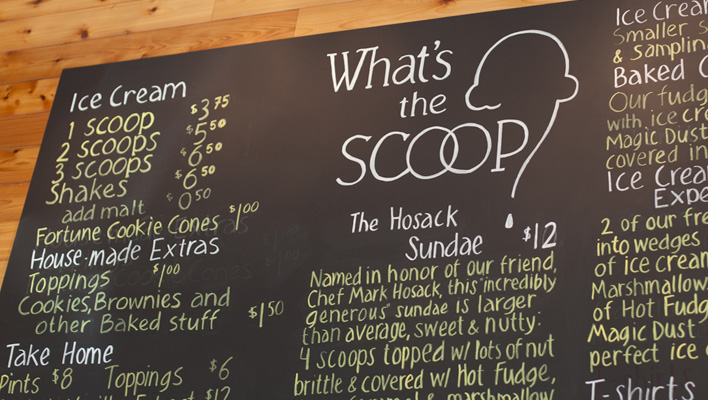 Ice Cream
1 scoop $3.75
2 scoops $5.50
3 scoops $6.50
Shakes $6.50
add malt $0.50
Fortune Cookie Cones $1.00
House-made Extras
Toppings $1.00
Cookies, Brownies and
other Baked stuff $1.50
Take Home
Pints $8 Toppings $6
$12
What's
the
SCOOP
The Hosack
Sundae $12
Named in honor of our friend,
Chef Mark Hosack, this "incredibly
generous" sundae is larger
than average, sweet & nutty:
4 scoops topped w/ lots of nut
brittle & covered w/ Hot Fudge,
& marshmallow
Ice Cream
Smaller s
& Samplin
Baked
Our fudg
with ice cre
Magic Dust
covered in
Ice Crea
Expe
2 of our fre
into wedges
of ice cream
Marshmallow
of Hot Fudg
Magic Dust
perfect ice
T-shirts